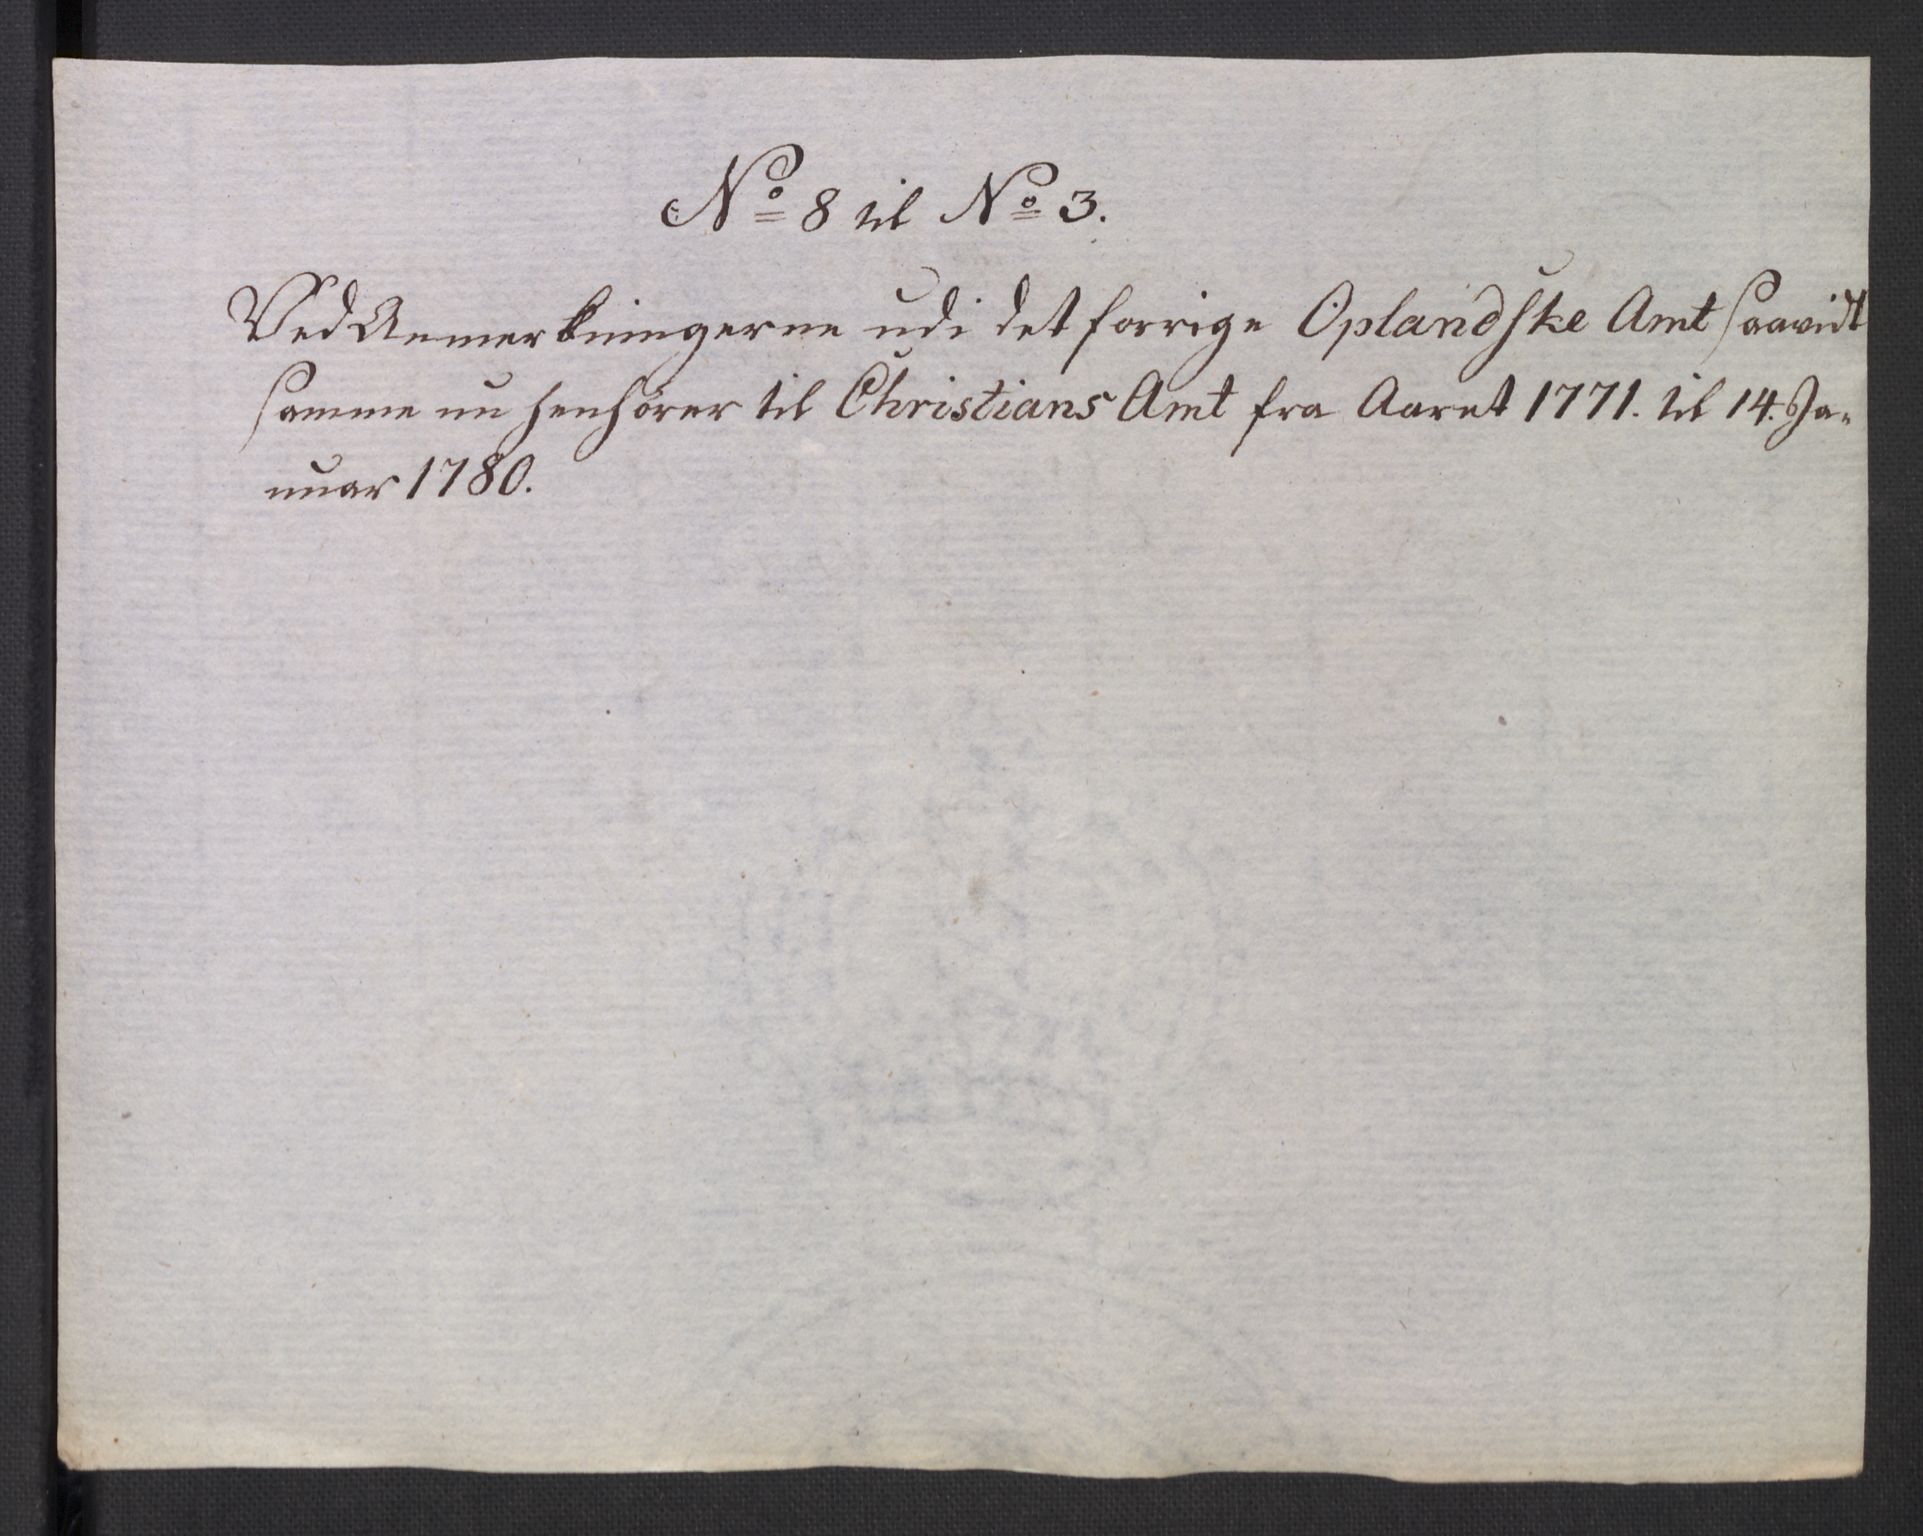 No 8 til No 3.
Ved Anmerkningerne udi det forrige Oplandske Amt saavidt
samme nu henhörer til Christians Amt fra Aaret 1771. til 14. Ja-
nuar 1780.